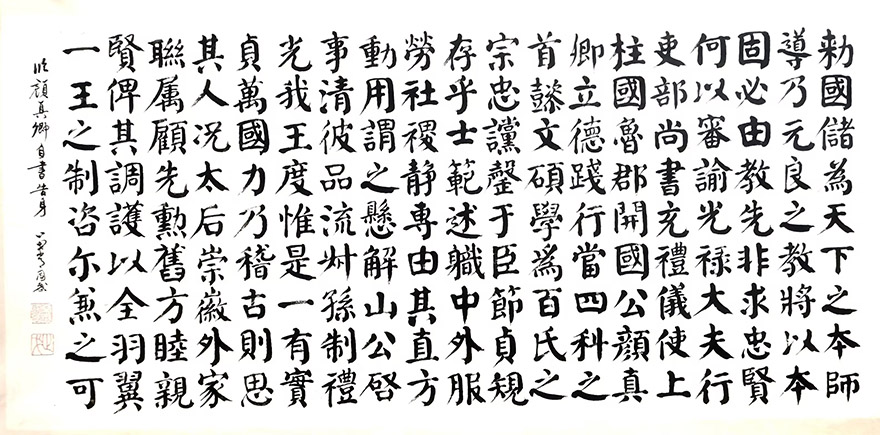 勅國儲為天下之本師
導乃元良之教將以本
固必由教先非求忠賢
何以審諭光禄大夫行
吏部尚書充禮儀使上
柱國魯郡開國公顔真
卿立德踐行當四科之
首懿文碩學爲百氏之
宗忠讜罄于臣節貞規
存乎士範述職中外服
勞社稷静專由其直方
動用謂之懸解山公啓
事清彼品流叔孫制禮
光我王度惟是一有實
貞萬國力乃稽古則思
其人况太后崇徽外家
聯属顧先勳舊方睦親
賢俾其調護以全羽翼
一王之制咨尔兼之可
临顔真卿自書告身